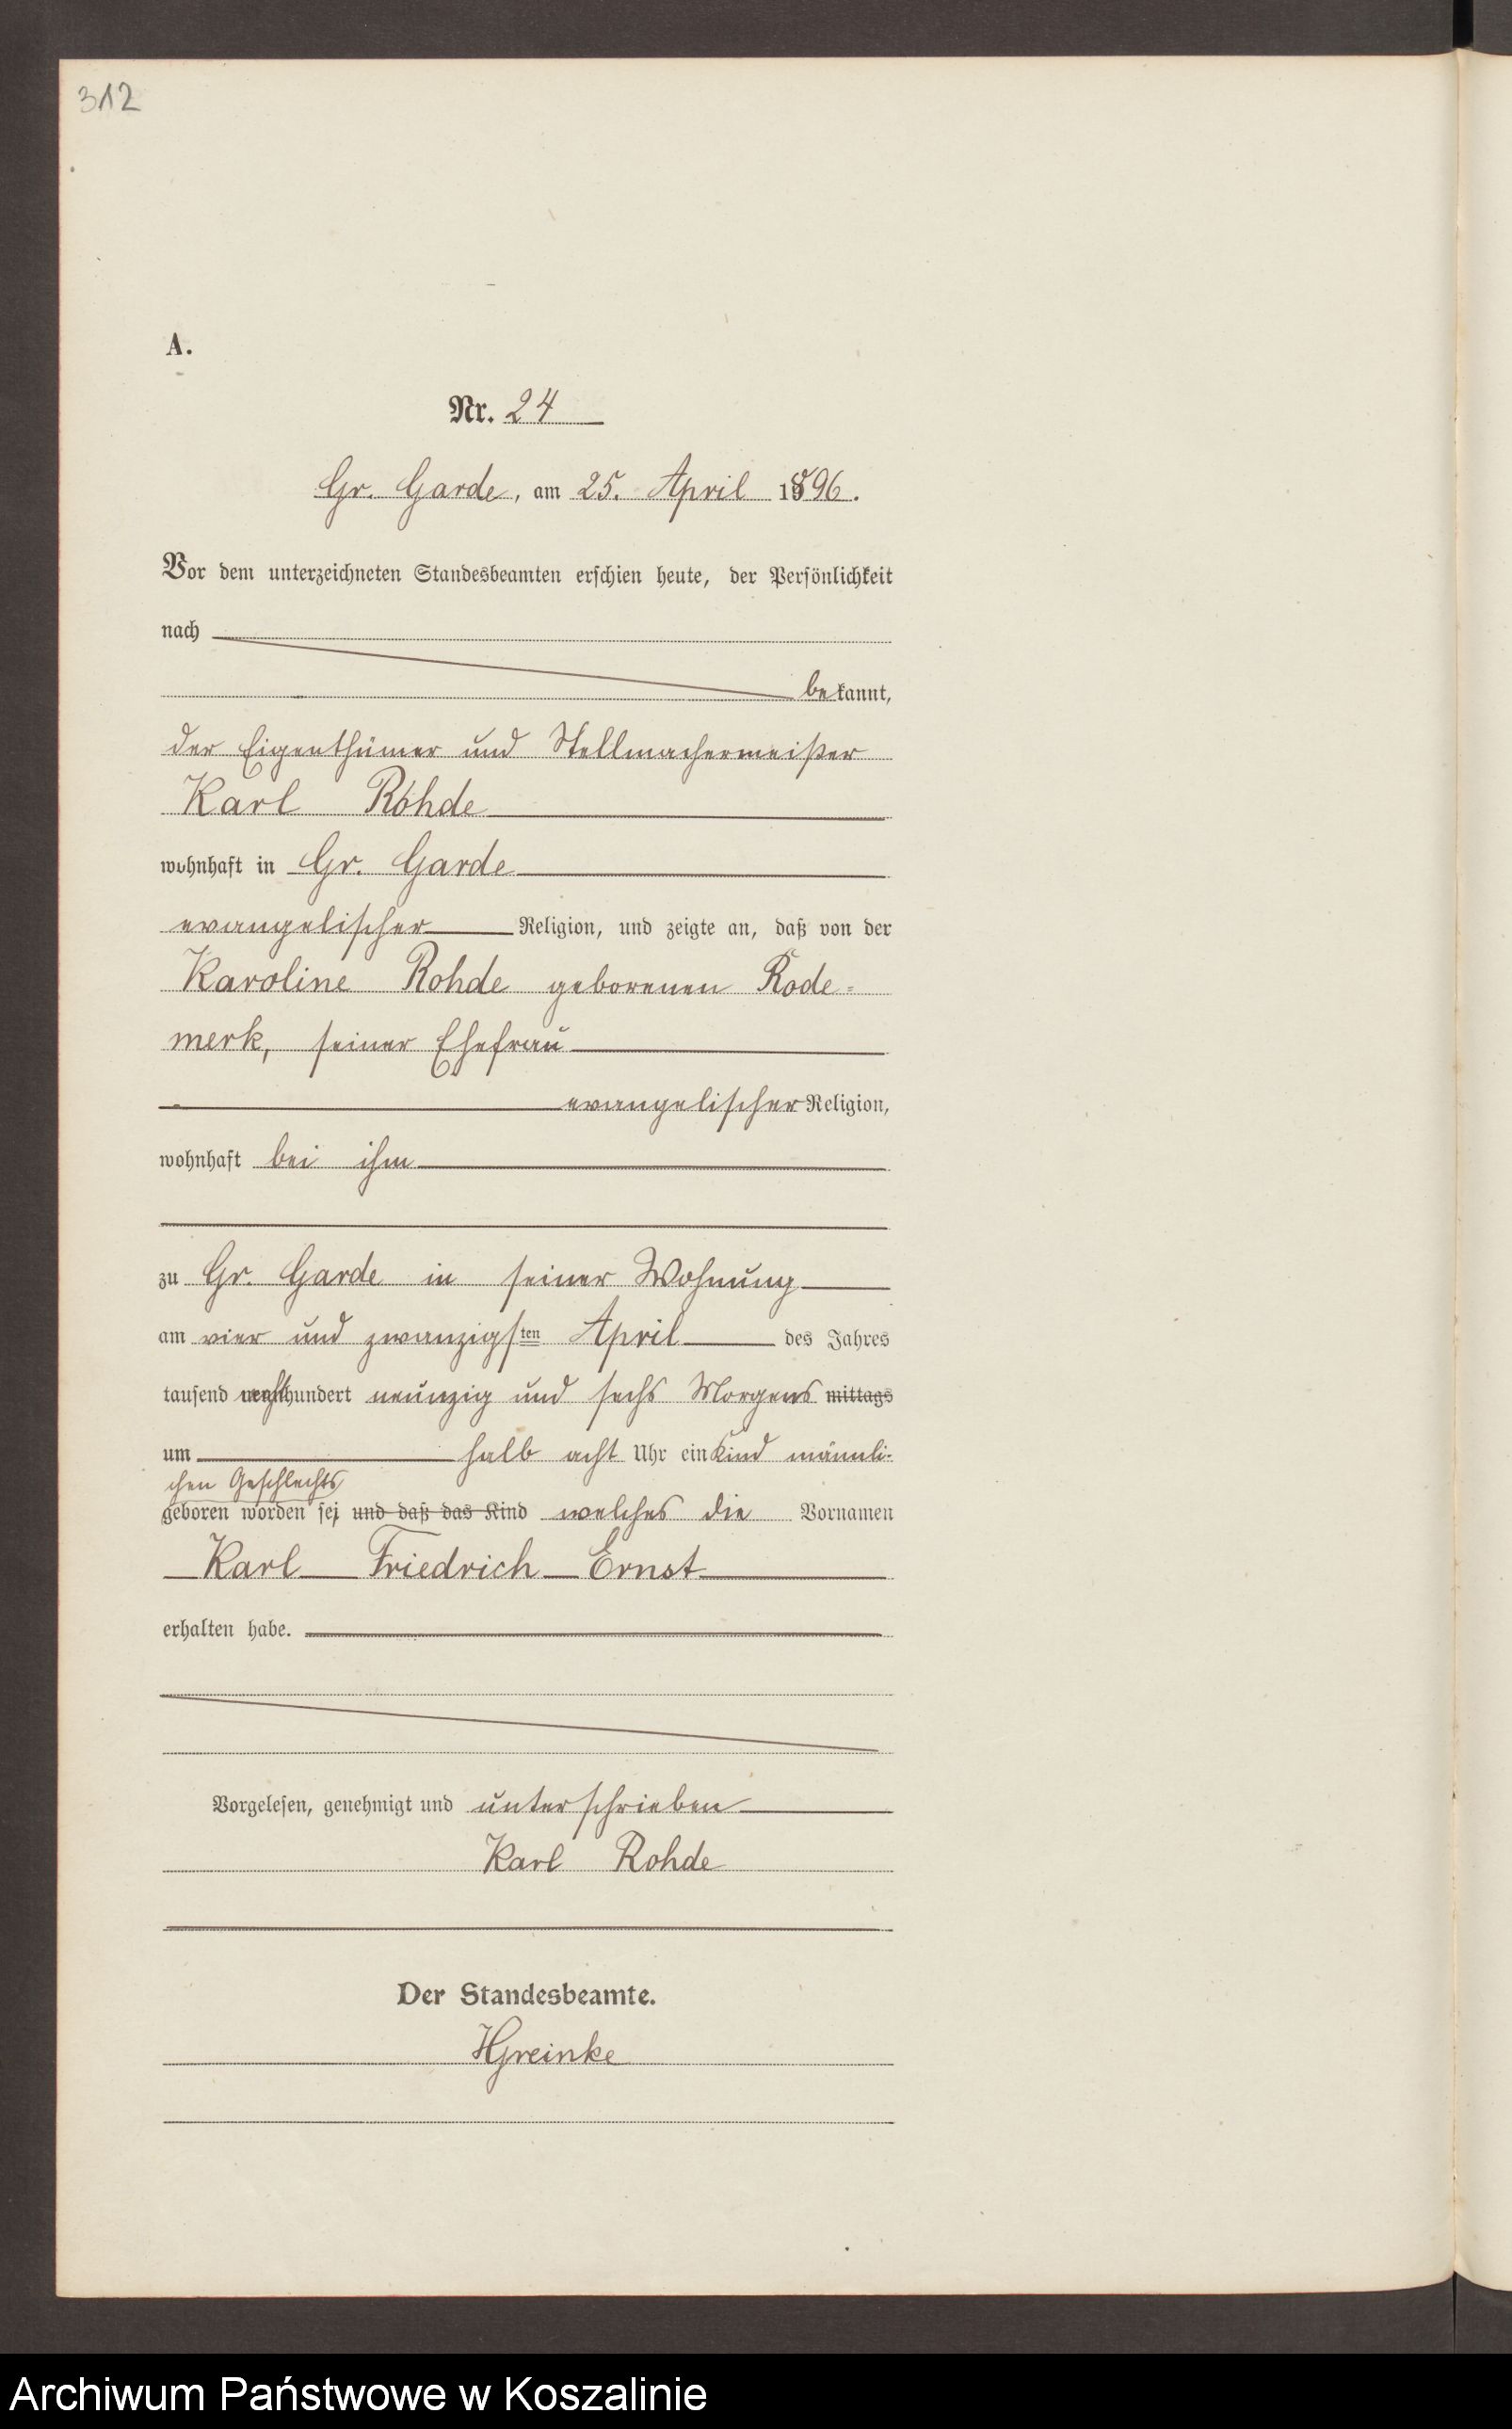 312
A.
Nr. 24
Gr. Garde, am 25. April 1896.
Vor dem unterzeichneten Standesbeamten erschien heute, der Persönlichkeit
nach
bekannt,
der Eigenthümer und Stellmachermeister
Karl Rohde
wohnhaft in Gr. Garde
evangelischer Religion, und zeigte an, daß von der
Karoline Rohde geborenen Rode-
merk, seiner Ehefrau
evangelischer Religion,
wohnhaft bei ihm
zu Gr. Garde in seiner Wohnung
am vier und zwanzigsten April des Jahres
tausend achthundert neunzig und sechs Morgens mittags
um halb acht Uhr ein Kind männli-
chen Geschlechts
geboren worden sei und daß das Kind welches die Vornamen
Karl Friedrich Ernst
erhalten habe.
Vorgelesen, genehmigt und unterschrieben
Karl Rohde
Der Standesbeamte.
HGreinke
Archiwum Państwowe w Koszalinie